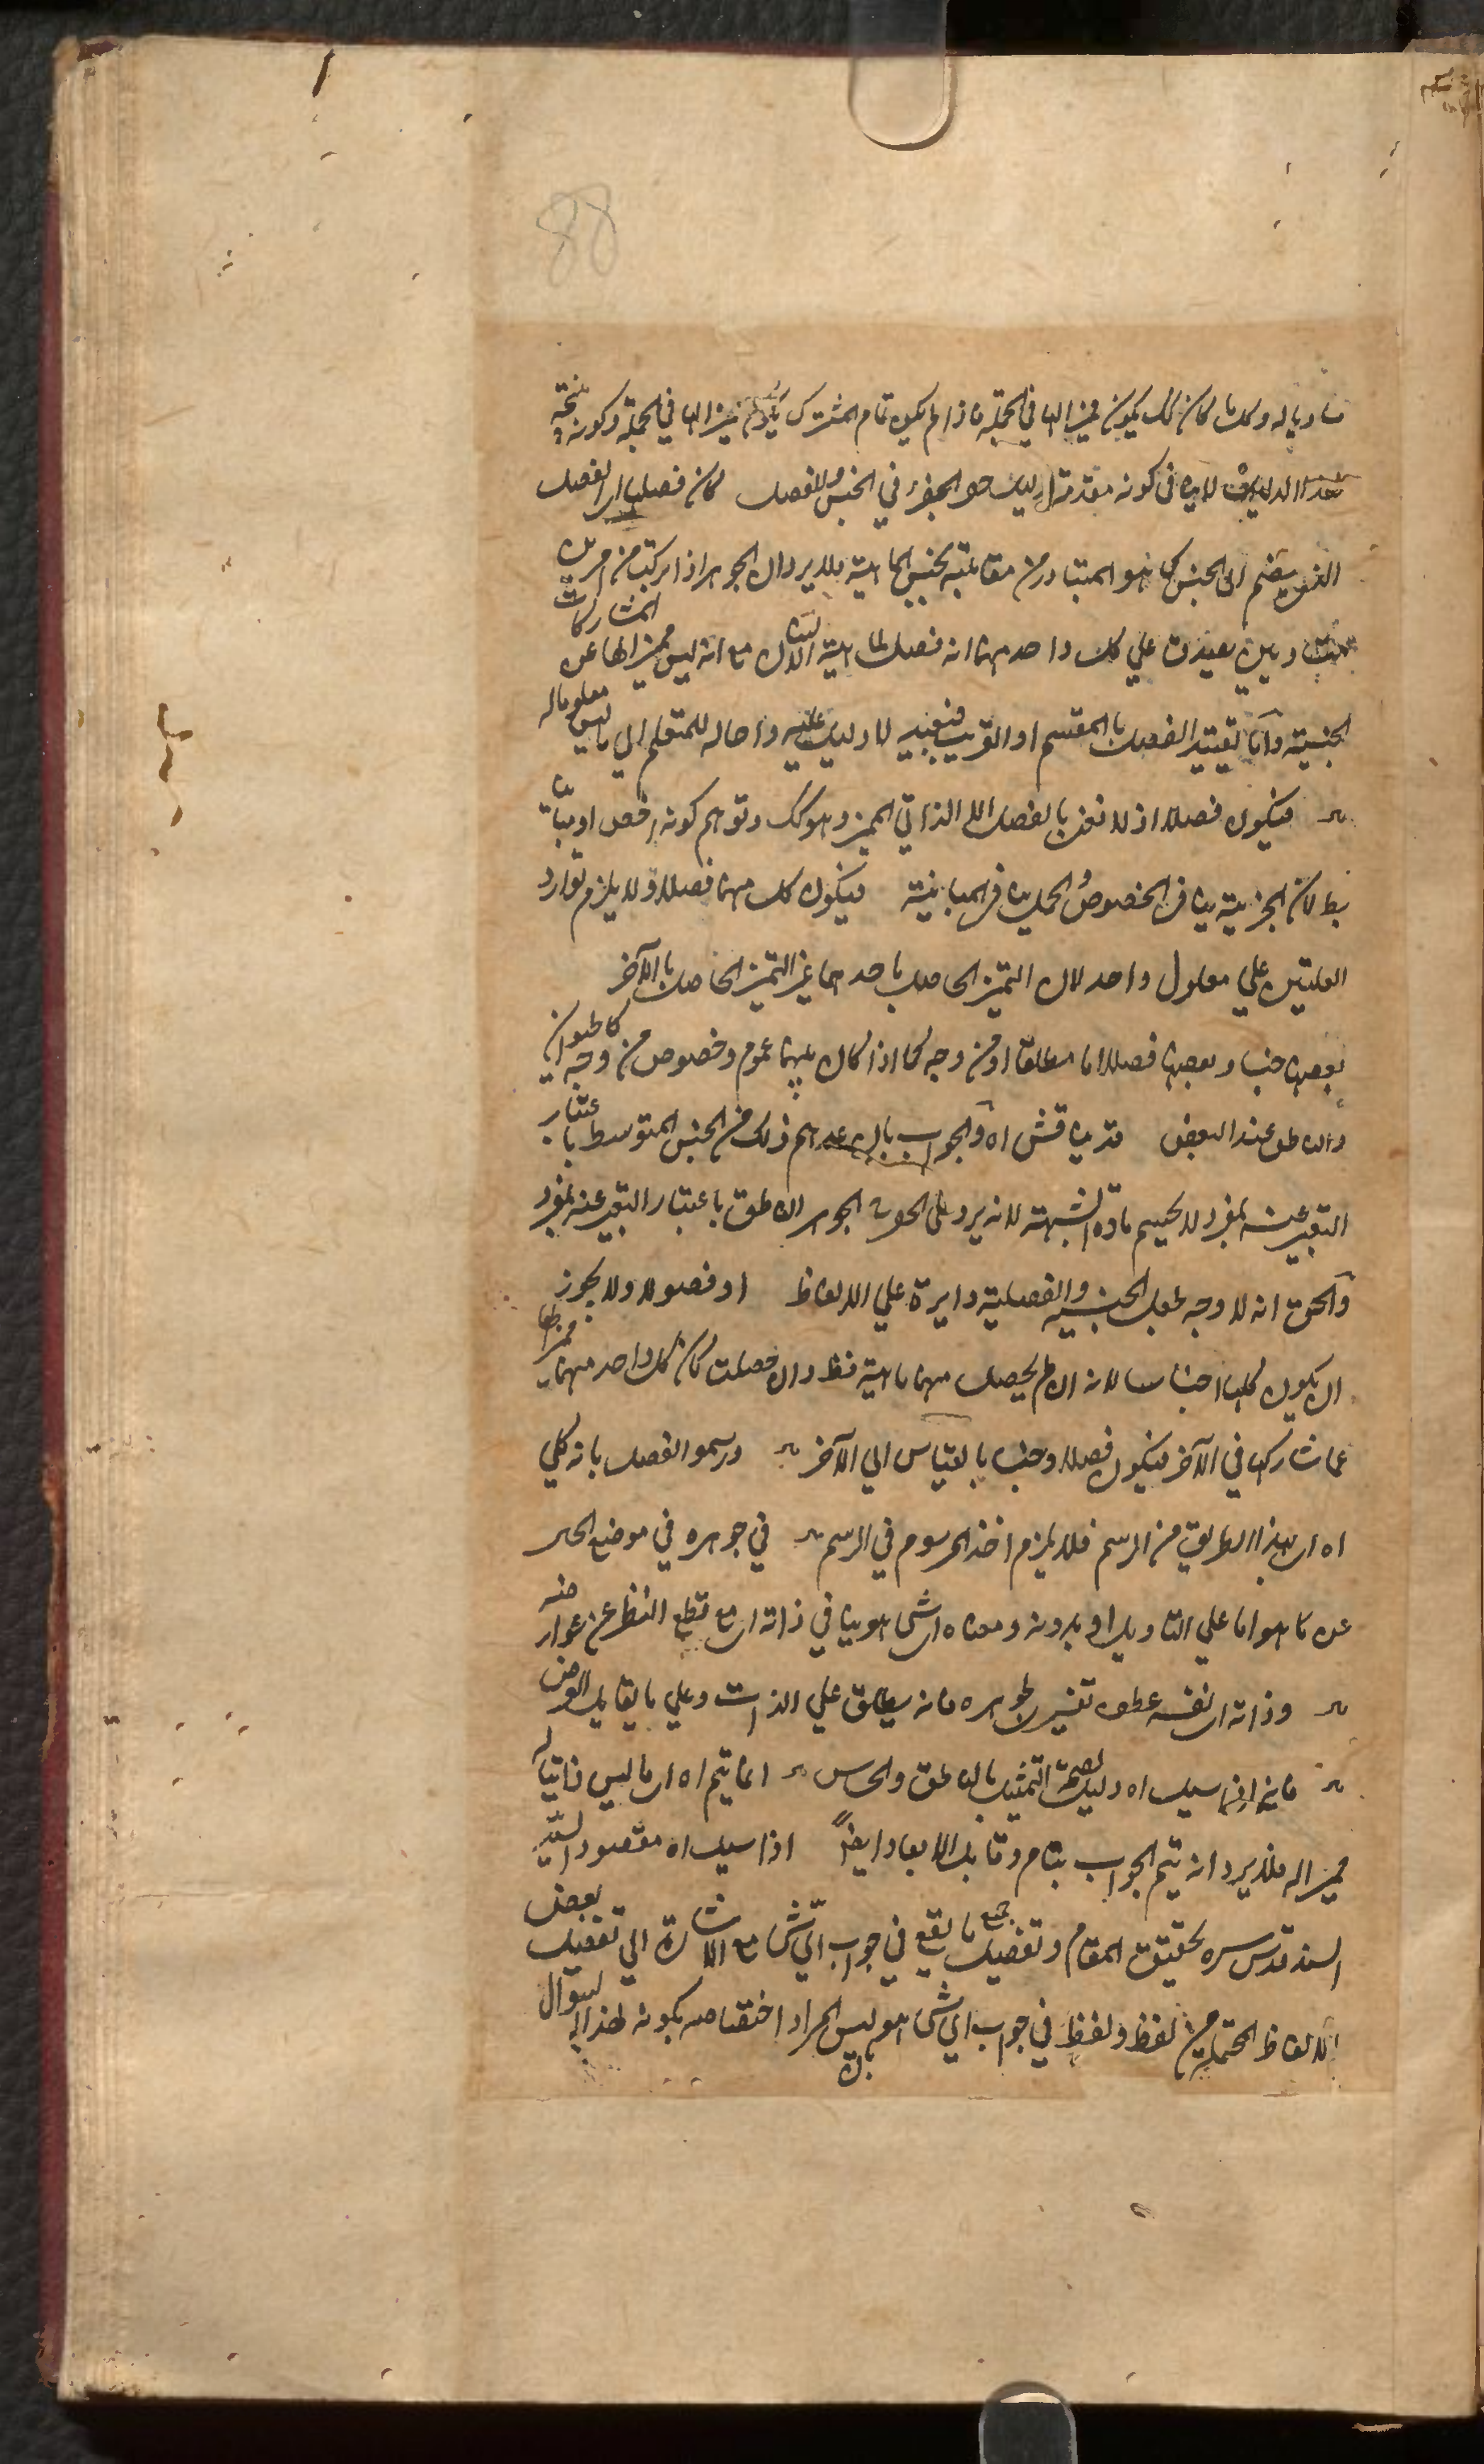 88
مساويا له وكل ما كان كك يكون مميزا لها في الجملة فاذا لم يكن تمام المشترك يكون مميزا لها في الجملة وكونه نتيجة
لهذا الدليل لا ينافي كونه مقدمة لدليل حصر الجزء في الجنس والفصل كان فصليا اي الفصل
الذي ينضم الى الجنس كما هو المتبادر من مقابلته بجنس الماهية فلا يرد ان الجوهر اذا تركب من امرين
متساويين يصدق علي كل واحد منهما انه فصل لماهية الانسان مع انه ليس مميزا لها عن المشاركات
الجنسية واما تقييد الفصل بالمقسم او القريب فتقييد لا دليل عليه واحالة للمتعلم الي ما ليس معلوما له
فيكون فصلا اذ لا نعني بالفصل الا الذاتي المميز وهو كك وتوهم كونه اخص او مباينا
بطلان الجزئية ينافي الخصوص والحمل ينافي المباينة فيكون كل منهما فصلا ولا يلزم توارد
العلتين علي معلول واحد لان التميز الحاصل باحدهما غير التميز الحاصل بالآخر
بعضها جنسا وبعضها فصلا اما مطلقا او من وجه كما اذا كان بينهما عموم وخصوص من وجه كالحيوان
والناطق عند البعض قد يناقش اه والجواب بان عدهم ذلك من الجنس المتوسط باعتبار
التعبير عنه بمفرد لا يحسم مادة الشبهة لانه يرد علي الحيوان الجوهر الناطق باعتبار التعبير عنه بمفرد
والحق انه لا وجه لجعل الجنسية والفصلية دايرة علي الالفاظ او فصولا ولا يجوز
ان يكون كلها اجناسا لانه ان لم يحصل منهما ماهية فظ وان حصلت كان كل واحد منهما مميزا لها
عما شاركها في الآخر فيكون فصلا وجنسا بالقياس الي الآخر ورسموا الفصل بانه كلي
اه اي بهذا الطريق من الرسم فلا يلزم اخذ المرسوم في الرسم في جوهره في موضع الحال
عن ما هو اما علي التاويل او بدونه ومعناه اي شي هو بينا في ذاته اي مع قطع النظر عن عوارضه
وذاته اي نفسه عطف تفسير لجوهره فانه يطلق علي الذات وعلي ما يقابل العرض
فانه اذا سيل اه دليل لصحة التمثيل بالناطق والحساس انما يتم اه اي ما ليس ذاتيا له
مميز اله فلا يرد انه يتم الجواب بنام وقابل الابعاد ايضا اذا سيل اه مقصود السيد
السند قدس سره تحقيق المقام وتفصيل جميع ما يقع في جواب اي شي مع الاشارة الي تفصيل بعض
الالفاظ المحتملة من لفظ ولفظ في جواب اي شي هو ليس المراد اختصاصه بكونه لهذا السوال
بان